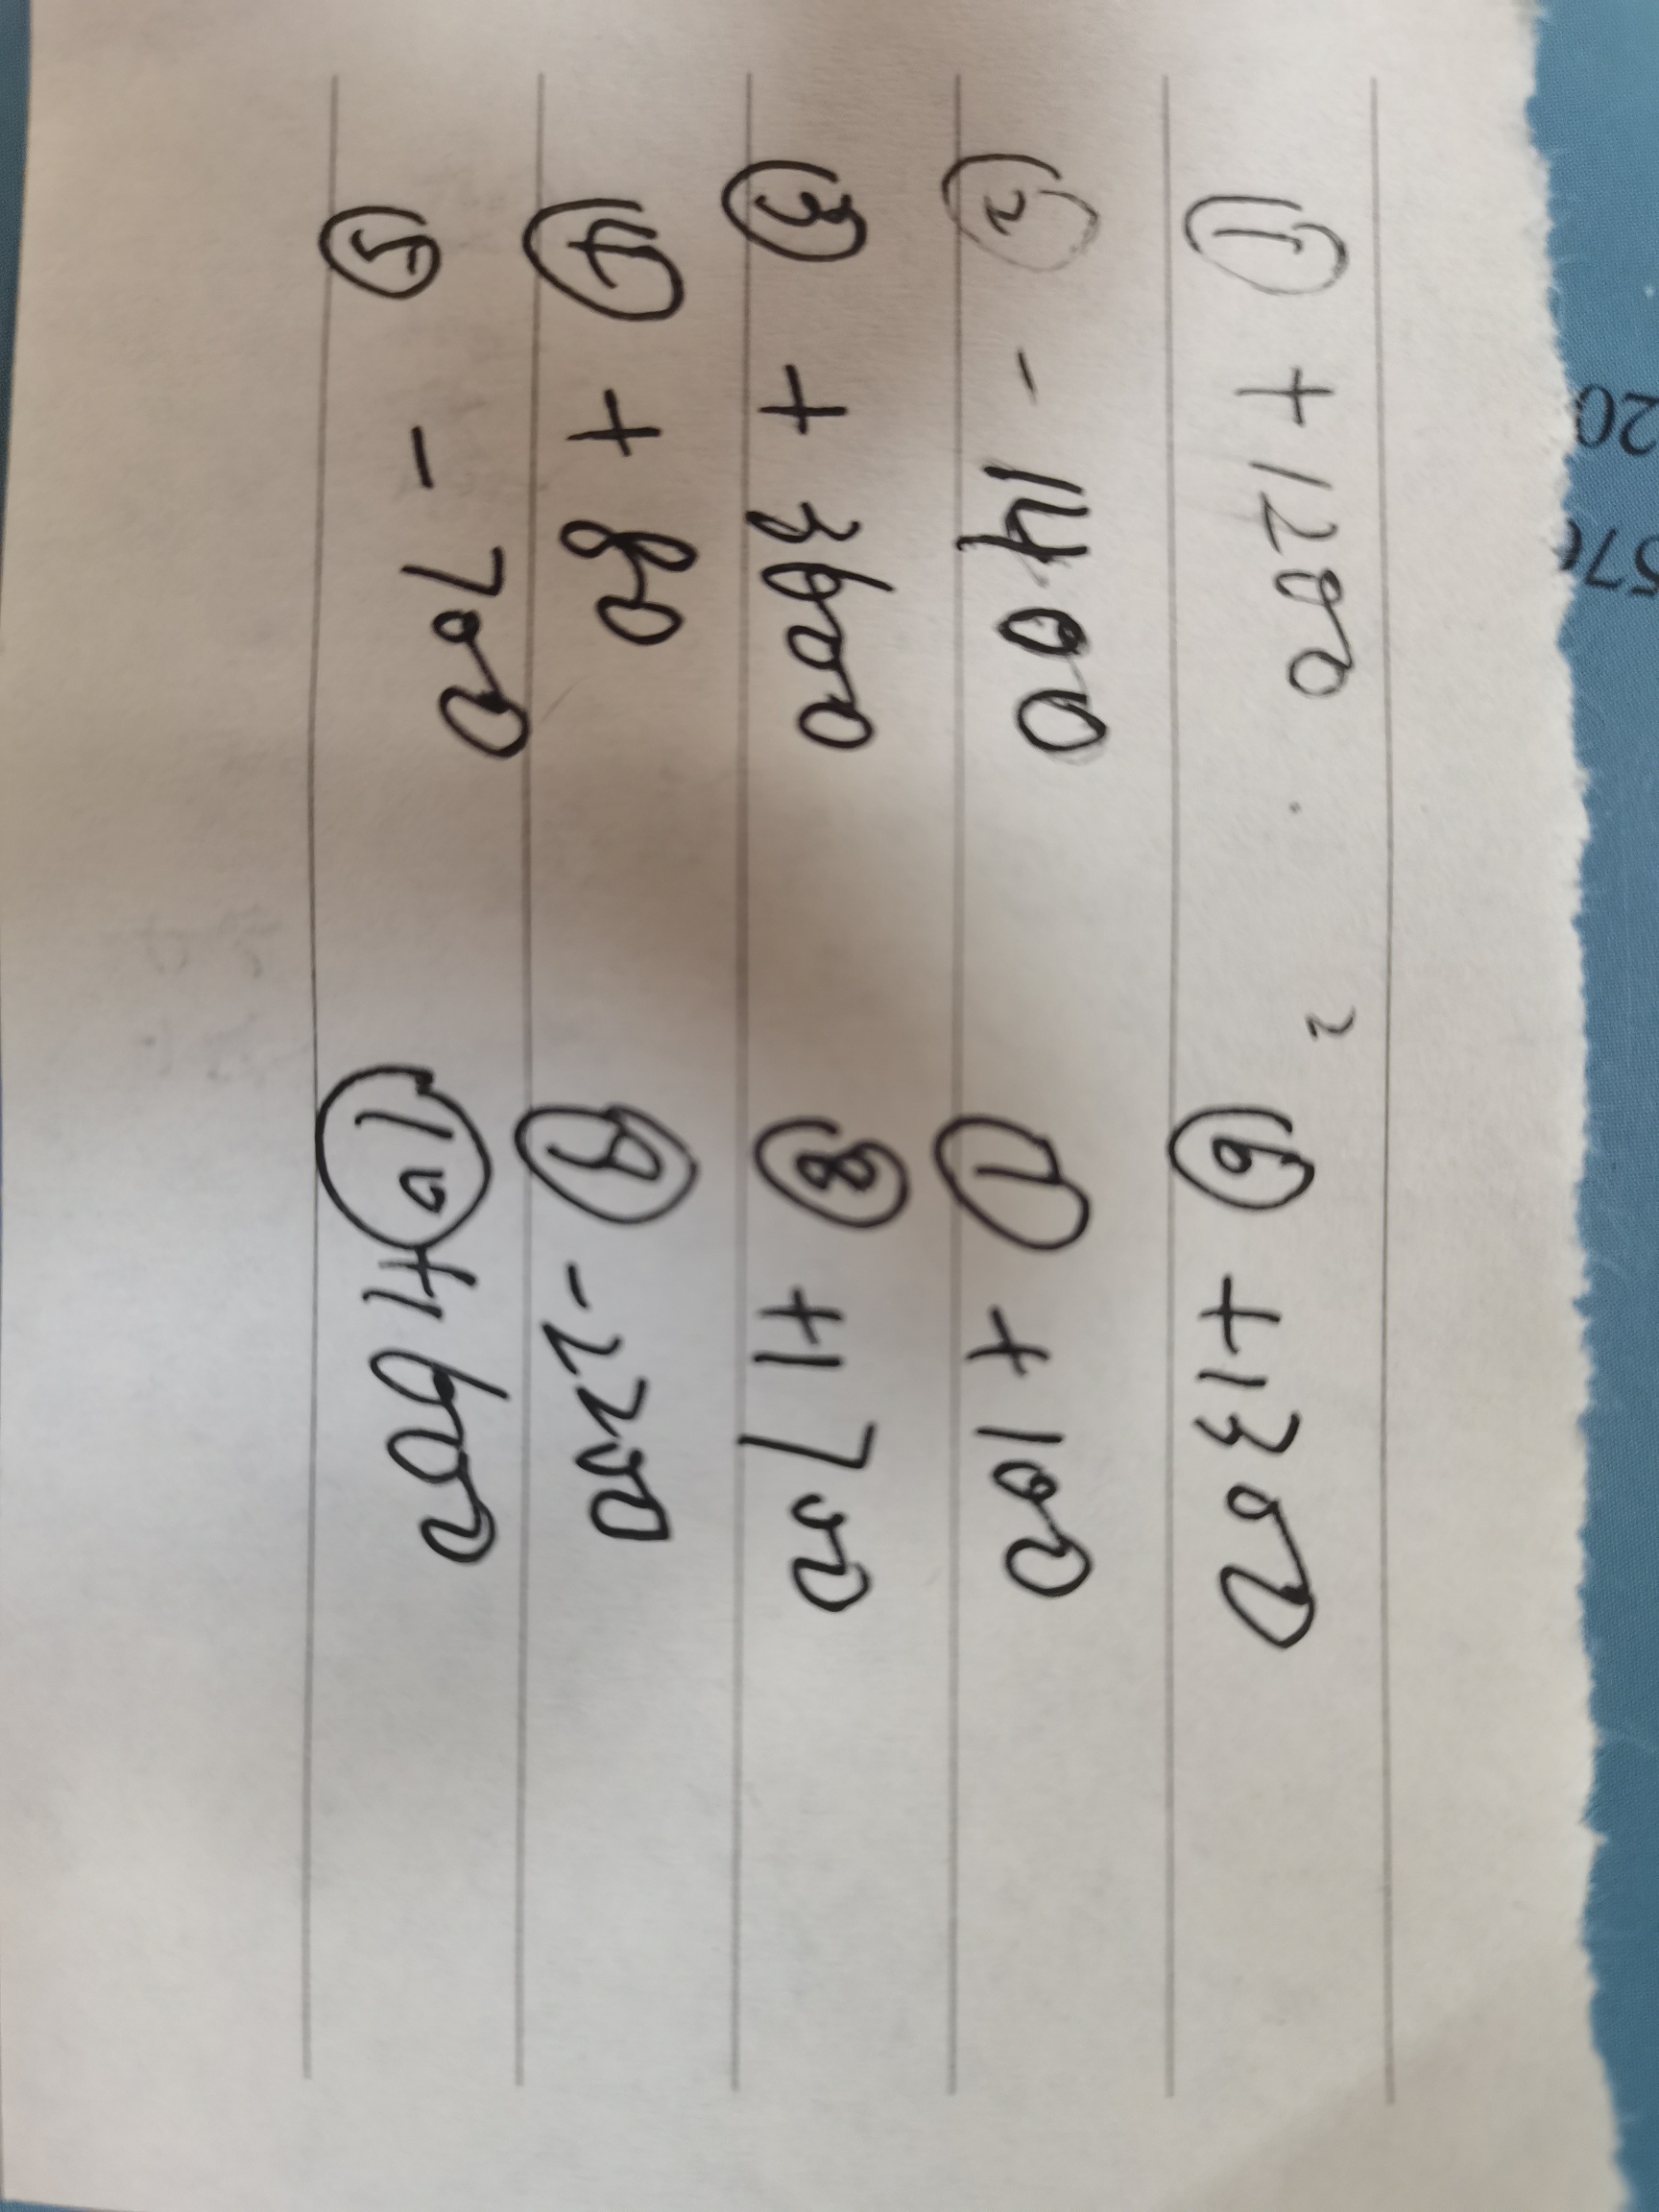 ① +1200 . 2 ⑥ +1300
② -1400 ⑦ +100
③ +3600 ⑧ +1700
④ +80 ⑨ -2200
⑤ -700 ⑩ +1600
20